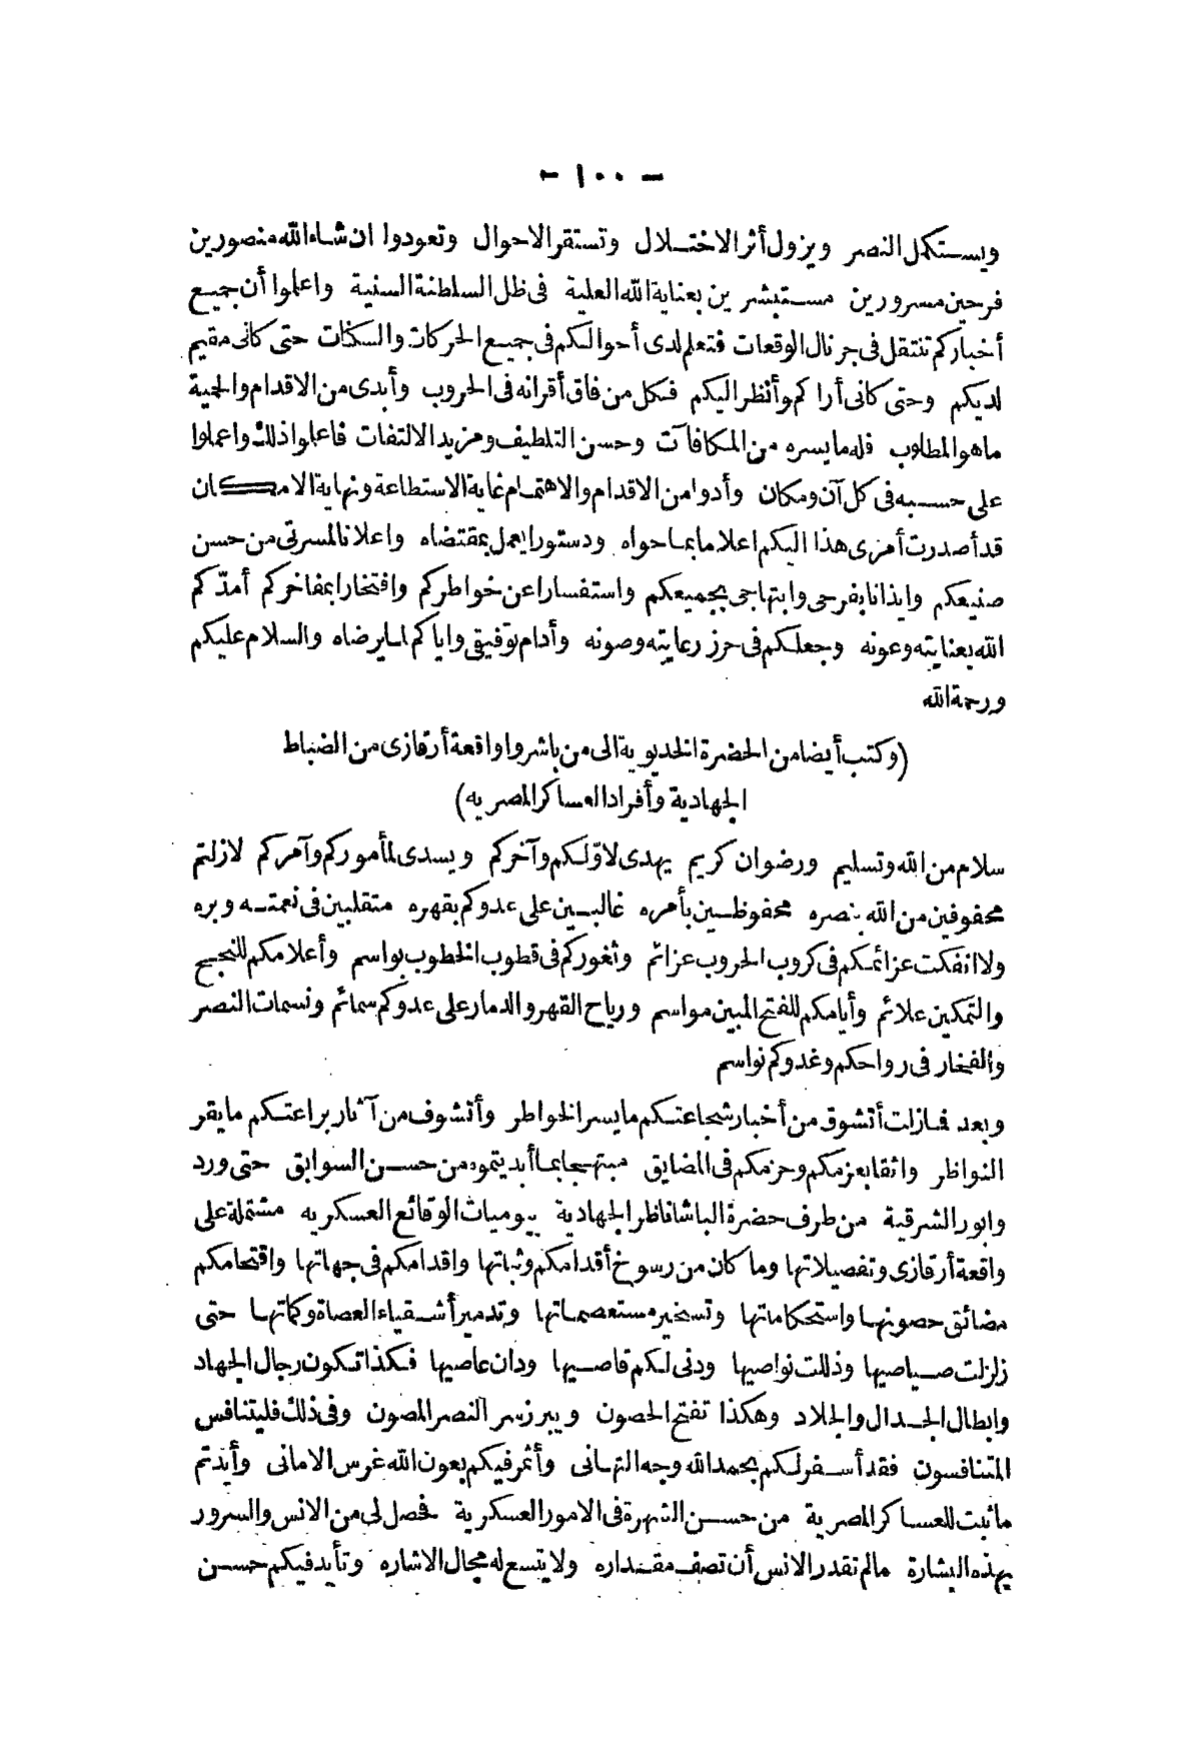 - ١٠٠ -
ويستكمل النصر ويزول أثر الاختلال وتستقر الاحوال وتعودوا ان شاء الله منصورين
فرحين مسرورين مستبشرين بعناية الله العلية فى ظل السلطنة السنية واعلموا أن جميع
أخباركم تنتقل فى جرنال الوقعات فتعلم لدى أحوالكم فى جميع الحركات والسكنات حتى كانى مقيم
لديكم وحتى كانى أراكم وأنظر اليكم فكل من فاق أقرانه فى الحروب وأبدى من الاقدام والحمية
ما هو المطلوب فله ما يسره من المكافآت وحسن التلطيف ومزيد الالتفات فاعلموا ذلك واعملوا
على حسبه فى كل آن ومكان وأدوا من الاقدام والاهتمام غاية الاستطاعة ونهاية الامكان
قد أصدرت أمرى هذا اليكم اعلاما بما حواه ودستورا يعمل بمقتضاه واعلانا لمسرتى من حسن
صنيعكم وايذانا بفرحى وابتهاجى بجميعكم واستفسارا عن خواطركم وافتخارا بمفاخركم أمدّكم
الله بعنايته وعونه وجعلكم فى حرز رعايته وصونه وأدام توفيقى واياكم لما يرضاه والسلام عليكم
ورحمة الله
(وكتب أيضا من الحضرة الخديوية الى من باشروا واقعة أرقازى من الضباط
الجهادية وأفراد العساكر المصريه)
سلام من الله وتسليم ورضوان كريم يهدى لاوّلكم وآخركم ويسدى لمأموركم وآمركم لازلتم
محفوفين من الله بنصره محفوظين بأمره غالبين على عدوكم بقهره متقلبين فى نعمته وبره
ولا انفكت عزائمكم فى كروب الحروب عزائم وثغوركم فى قطوب الخطوب بواسم وأعلامكم للنجح
والتمكين علائم وأيامكم للفتح المبين مواسم ورياح القهر والدمار على عدوكم سمائم ونسمات النصر
والفخار فى رواحكم وغدوكم نواسم
وبعد فمازلت أتشوق من أخبار شجاعتكم ما يسر الخواطر وأتشوف من آثار براعتكم ما يقر
النواظر واثقا بعزمكم وحزمكم فى المضايق مبتهجا بما أبديتموه من حسن السوابق حتى ورد
وابور الشرقية من طرف حضرة الباشا ناظر الجهادية بيوميات الوقائع العسكريه مشتملة على
واقعة أرقازى وتفصيلاتها وما كان من رسوخ أقدامكم وثباتها واقدامكم فى جهاتها واقتحامكم
مضائق حصونها واستحكاماتها وتسخير مستعصماتها وتدمير أشقياء العصاة وكماتها حتى
زلزلت صياصيها وذللت نواصيها ودنى لكم قاصيها ودان عاصيها فكذا تكون رجال الجهاد
وابطال الجدال والجلاد وهكذا تفتح الحصون ويبرز سر النصر المصون وفى ذلك فليتنافس
المتنافسون فقد أسفر لكم بحمد الله وجه التهانى وأثمر فيكم بعون الله غرس الامانى وأيدتم
ما ثبت للعساكر المصرية من حسن الشهرة فى الامور العسكرية فحصل لى من الانس والسرور
بهذه البشارة مالم تقدر الانس أن تصف مقداره ولا يتسع له مجال الاشاره وتأيد فيكم حسن